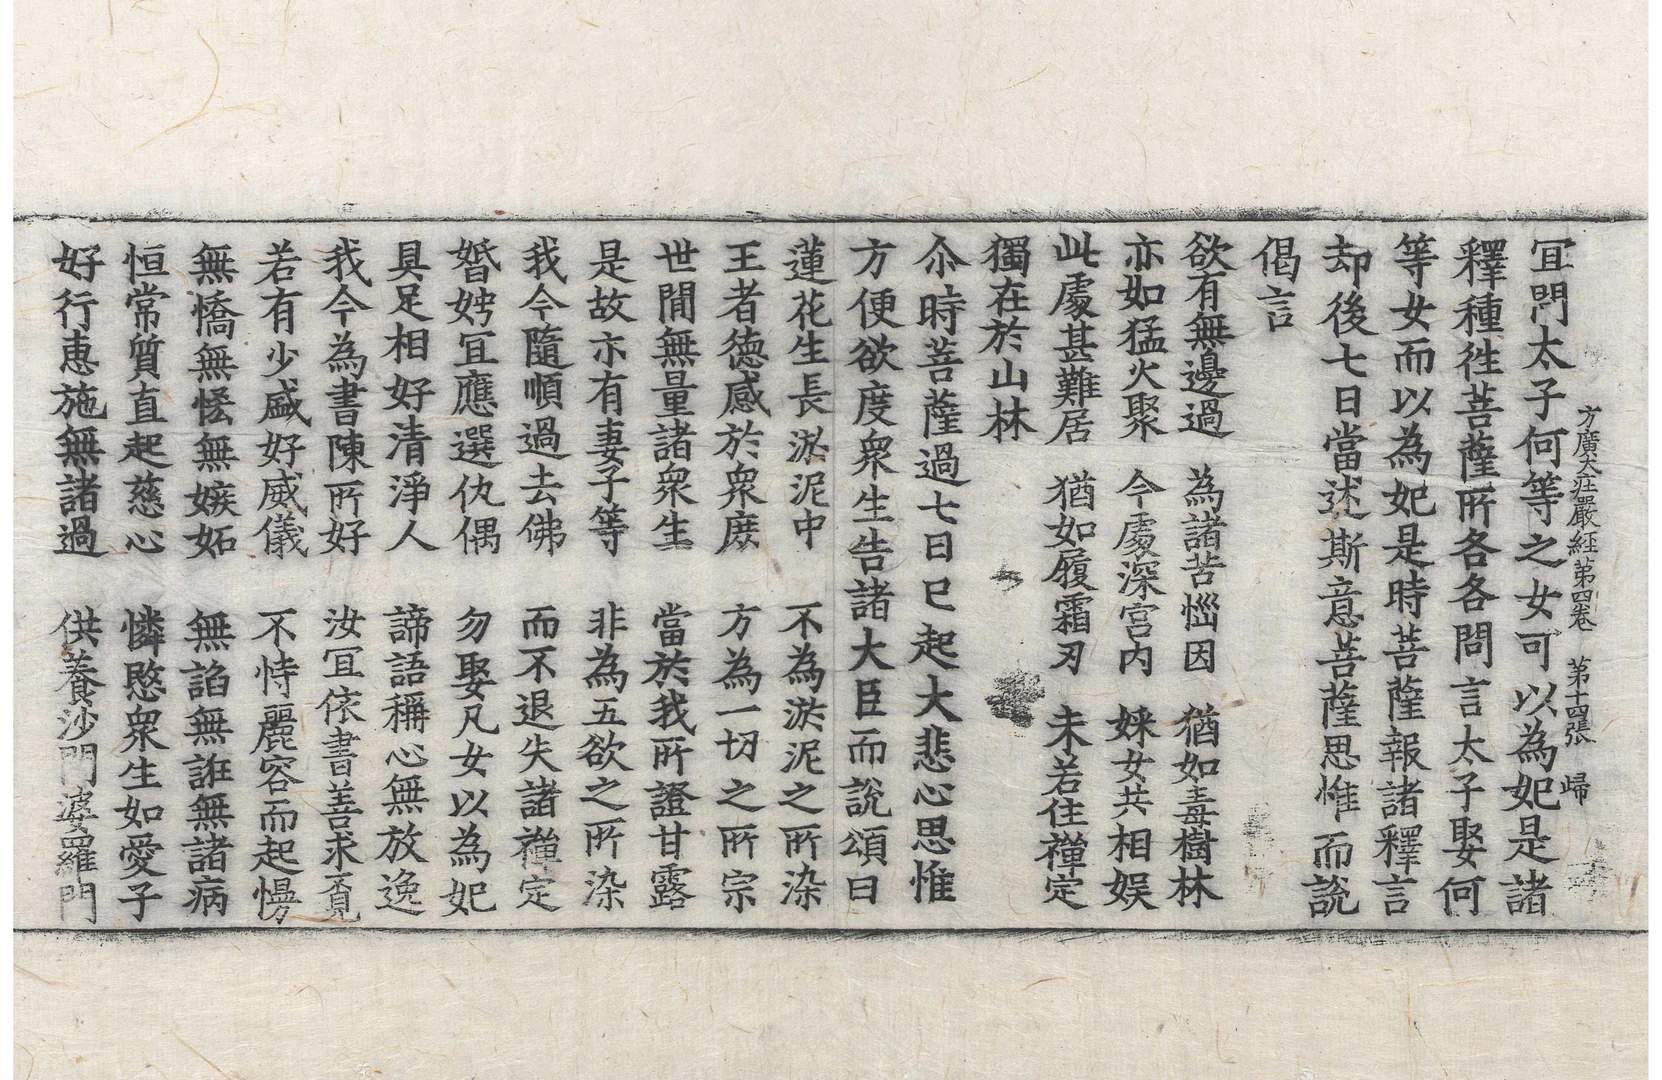 方廣大莊嚴經第四卷 第十四張 歸
冝問太子何等之女可以為妃是諸
釋種徃菩薩所各各問言太子娶何
等女而以為妃是時菩薩報諸釋言
却後七日當述斯意菩薩思惟而說
偈言
欲有無邊過 為諸苦惱因 猶如毒樹林
亦如猛火聚 今處深宮內 婇女共相娛
此處甚難居 猶如履霜刃 未若住禪定
獨在於山林
尒時菩薩過七日已起大悲心思惟
方便欲度衆生告諸大臣而說頌曰
蓮花生長淤泥中 不為淤泥之所染
王者德感於衆庶 方為一切之所宗
世間無量諸衆生 當於我所證甘露
是故亦有妻子等 非為五欲之所染
我今隨順過去佛 而不退失諸禪定
婚娉冝應選仇偶 勿娶凡女以為妃
具足相好清淨人 諦語稱心無放逸
我今為書陳所好 汝冝依書善求覔
若有少盛好威儀 不恃麗容而起慢
無憍無恡無嫉妬 無諂無誑無諸病
恒常質直起慈心 憐愍衆生如愛子
好行惠施無諸過 供養沙門婆羅門